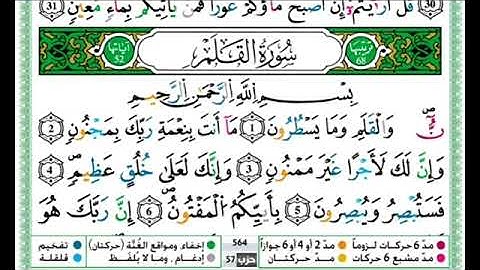 قُلْ أَرَءَيْتُمْ إِنْ أَصْبَحَ مَآؤُكُمْ غَوْرًا فَمَن يَأْتِيكُم بِمَآءٍ مَّعِينٍ 31
30
ترتيبها 68 سُورَةُ القَلَمِ آياتها 52
بِسْمِ اللَّهِ الرَّحْمَٰنِ الرَّحِيمِ
نٓ وَالْقَلَمِ وَمَا يَسْطُرُونَ 1 مَآ أَنتَ بِنِعْمَةِ رَبِّكَ بِمَجْنُونٍ 2
وَإِنَّ لَكَ لَأَجْرًا غَيْرَ مَمْنُونٍ 3 وَإِنَّكَ لَعَلَىٰ خُلُقٍ عَظِيمٍ 4
فَسَتُبْصِرُ وَيُبْصِرُونَ 5 بِأَييِّكُمُ الْمَفْتُونُ 6 إِنَّ رَبَّكَ هُوَ
مدّ 6 حركات لزوماً مدّ 2 أو 4 أو 6 جوازاً 564 إخفاء، ومواقع الغُنَّة (حركتان) تفخيم
مدّ مشبع 6 حركات مدّ حركتان حزب 57 إدغام، وما لا يُلفَظ قلقلة